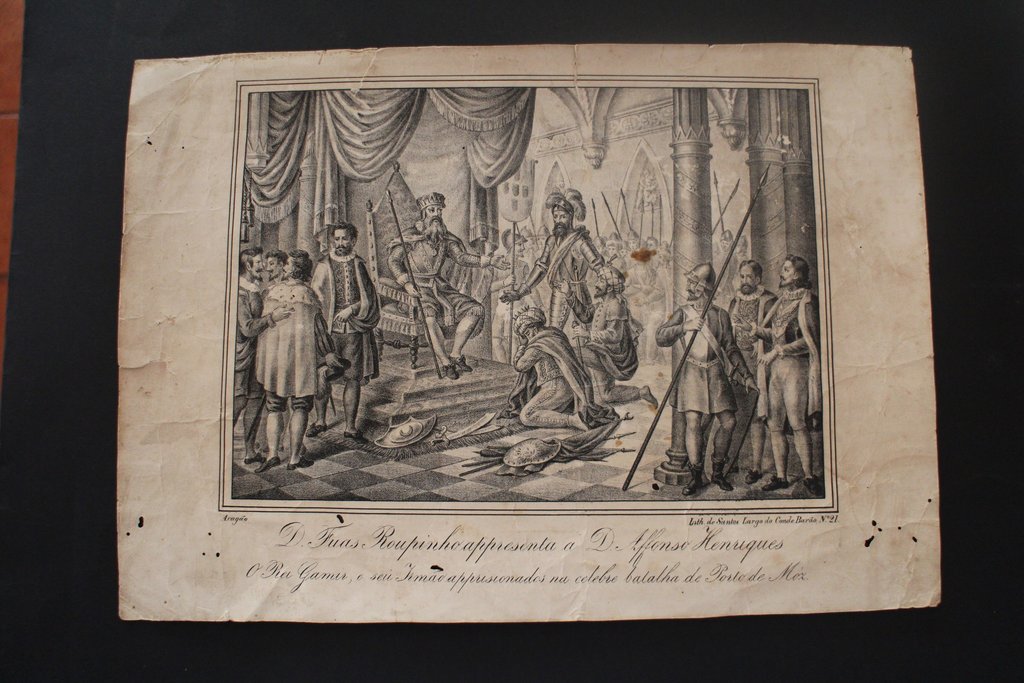 Aragão
Lith. de Santos Largo do Conde Barão Nº 21.
D. Fuas Roupinho appresenta a D. Affonso Henriques
O Rei Gamir, e seu Irmão apprisionados na celebre batalha de Porto de Móz.